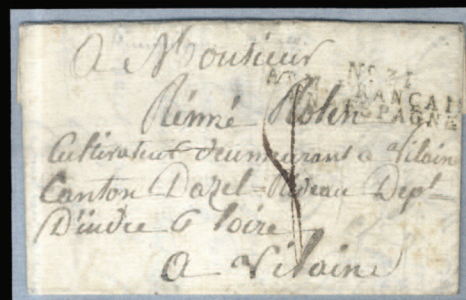 A Monsieur
No. 21
ARM. FRANÇAI
EN ESPAGNE
Rénné
Cultivateur demeurant a Vilaine
Canton Dazel=Rideau Dept
D'indre & loire
A Vilaine